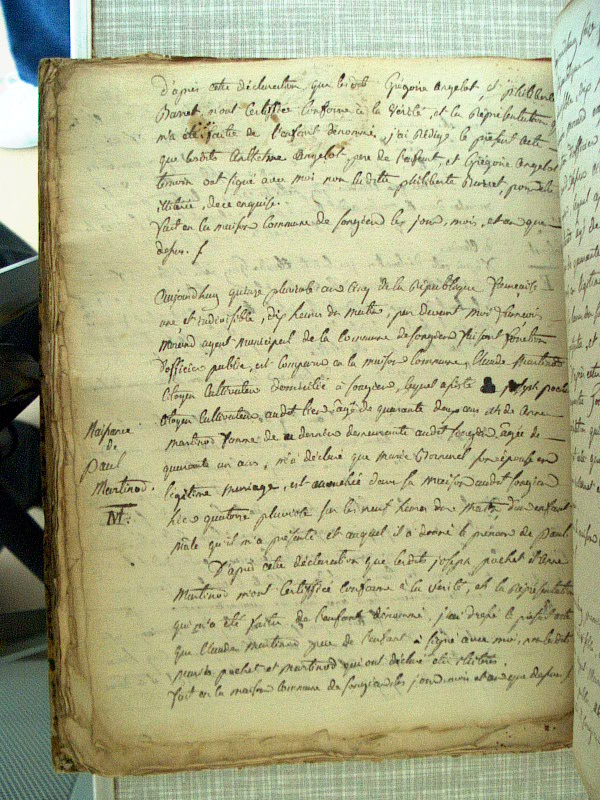 d'après cette déclaration, que lesdits Grégoire Angelot et philiberte
Barret, m'ont Certifiée Conforme à la vérité, et la Représentation
m'a été faite de l'enfant dénommé, j'ai Rédigé le présent acte
que lesdits Anthelme Angelot, pere de l'enfant et Grégoire Angelot
temoin ont signé avec moi non ladite philiberte Barret, pour être
illitérée, de ce enquise.
Fait en la maison Commune de Songieu les jour, mois, et an que
dessus.
Aujourd'huy quinze pluviose an Cinq de la République française
une et indivisible, dix heures du matin, par devant moi françois
agent Municipal de la Commune de Songieu faisant fonction
d'officier public, est Comparu en la maison Commune, Claude Martinod
Citoyen Cultivateur domicilié à Songieu, lequel assisté joseph pochet
Citoyen Cultivateur audit lieu âgé de quarante deux ans et de Anne
Martinod femme de dernier demeurante audit Songieu âgée de
quarante un ans, m'a déclaré que Marie son épouse en
légitime mariage, est accouchée dans sa maison audit Songieu
hier quatorze pluviose sur les neuf heures du matin d'un enfant
mâle qu'il m'a présenté et auquel il a donné le prénom de Paul.
D'après cette déclaration que lesdits joseph pochet et Anne
Martinod m'ont Certiffiée conforme à la vérité, et la Représentation
qui m'a été faite de l'enfant dénommé, j'ai le présent acte
que Claude Martinod pere de l'enfant a signé avec moi, non lesdits
pochet et Martinod qui ont déclaré être illitérés.
Fait en la maison Commune de Songieu les jour, mois et an que dessus.
Naissance
de
Paul
Martinod.
M.